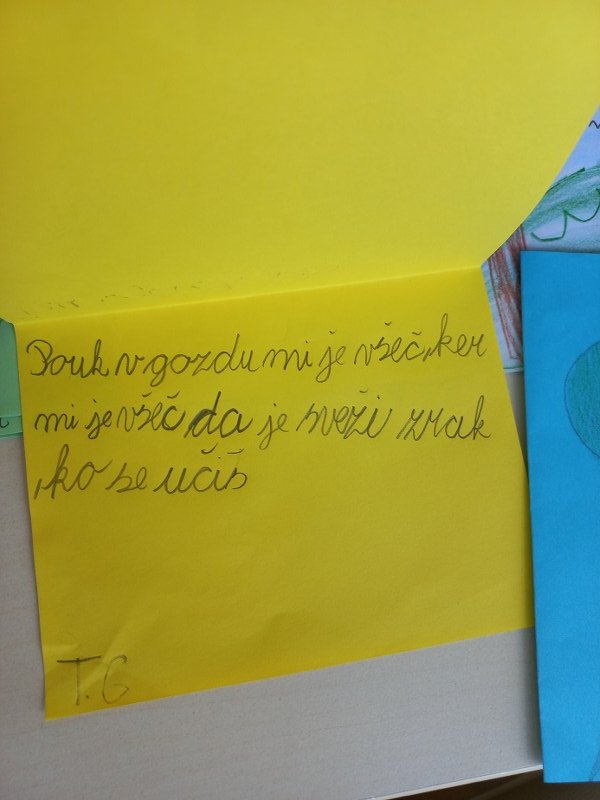 Pouk v gozdu mi je všeč, ker
mi je všeč da je sveži zrak
,ko se učiš
T. G